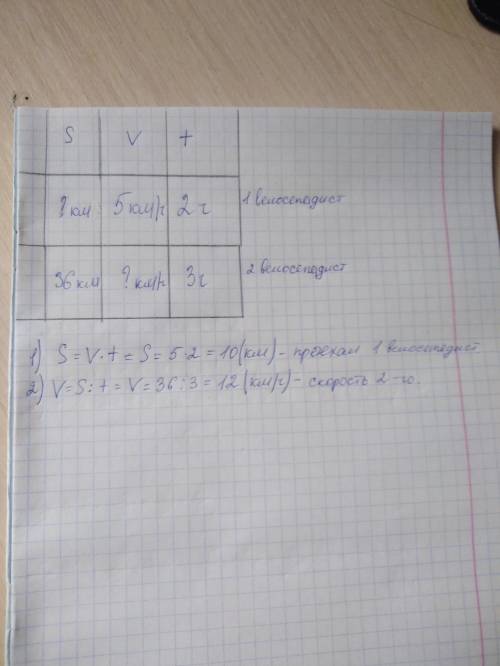 S V t
? км 5 км/ч 2 ч 1 велосепедист
36 км ? км/ч 3 ч 2 велосепедист
1) S = V · t = S = 5 · 2 = 10 (км) - проехал 1 велосепедист
2) V = S : t = V = 36 : 3 = 12 (км/ч) - скорость 2-го.